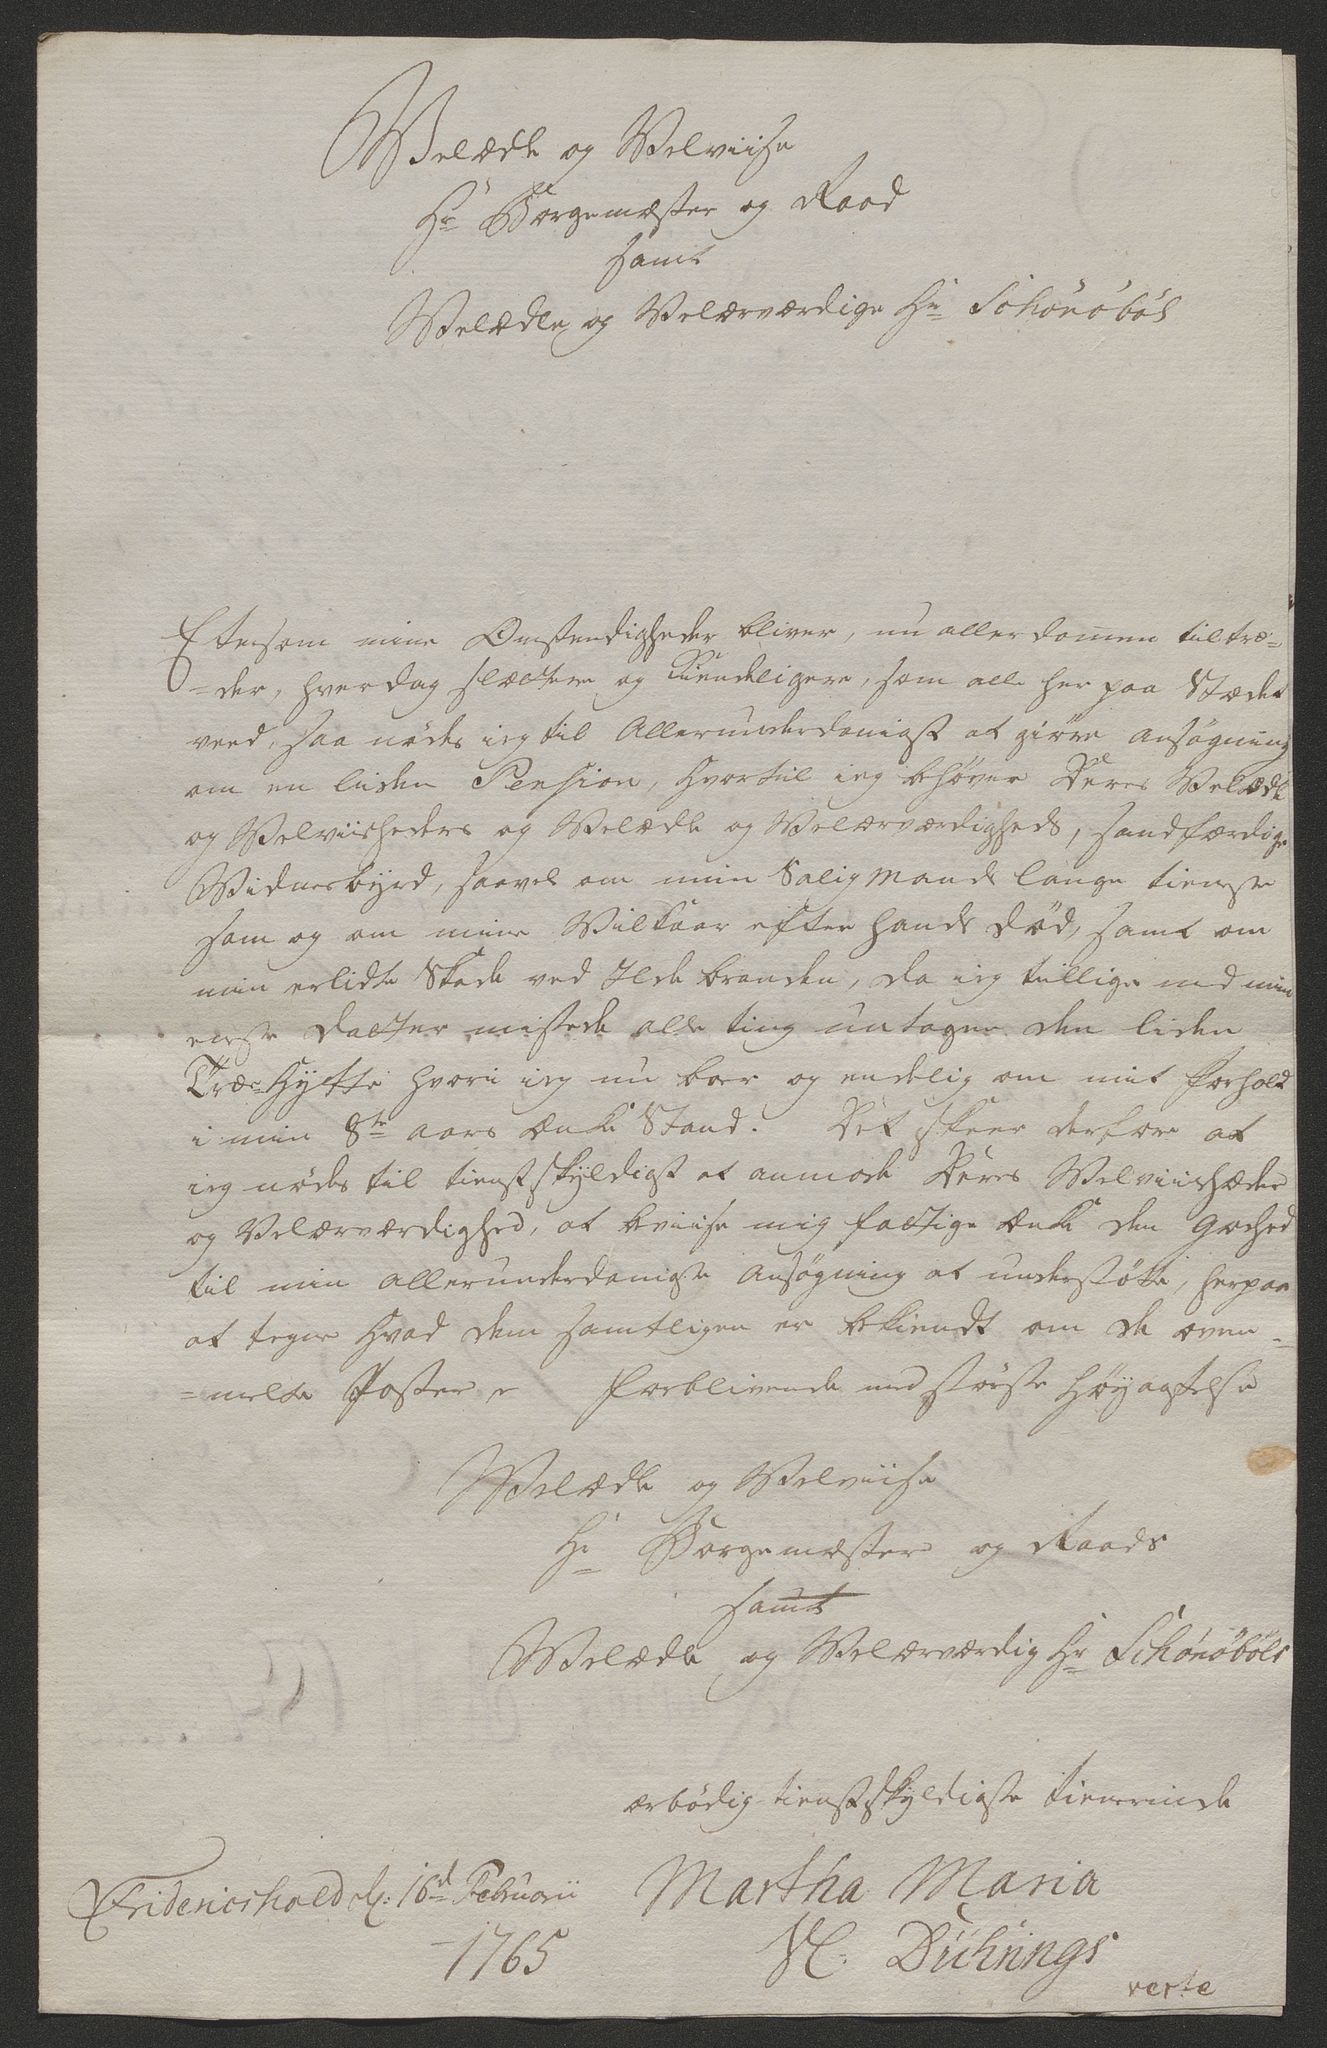 Velædle og Velviise
Hr Borgemæster og Raad
samt
Velædle og Velærværdige Hr Schönöböl
Eftersom mine Omstendigheder bliver, nu allerdommen tiltræ=
=der, hver dag slættere og Kiendeligere, som alle her paa Stædet
veed, saa nødes ieg til Allerunderdanigst at giöre ansögning
om en liden Pension, hvortil ieg behöver Deres Velædle
og Velviisheders og Velædle og Velærværdigheds, sandfærdige
Vidnesbyrd, saavel om min Salig Mands lange tieneste
som og om mine Vilkaar efter hands död, samt om
min erlidte Skade ved Ildebranden, da ieg tillige med min
eneste datter mistede alle ting untagen den liden
Træe Hytte hvori ieg nu boer og endelig om mit forhold
i min 8te aars Enke Stand. Det skeer derfore at
ieg nødes til tienstskyldigst at anmode Deres Velviishæder
og Velærværdighed, at beviise mig fattige Enke den Godhed
til min allerunderdanigste Ansögning at understötte, herpaa
at tegne hvad dem samtligen er bekiendt om de oven=
=melte Poster, forblivende med störste Höyagtelse
Velædle og Velviise
Hr Borgemæster og Raads
samt
Velædle og Velærværdig Hr Schönöböls
ærbödig tienstskyldigste tienerinde
Friderichshald d: 16d Februarii
1765
Martha Maria
Sl: Dührings
verte